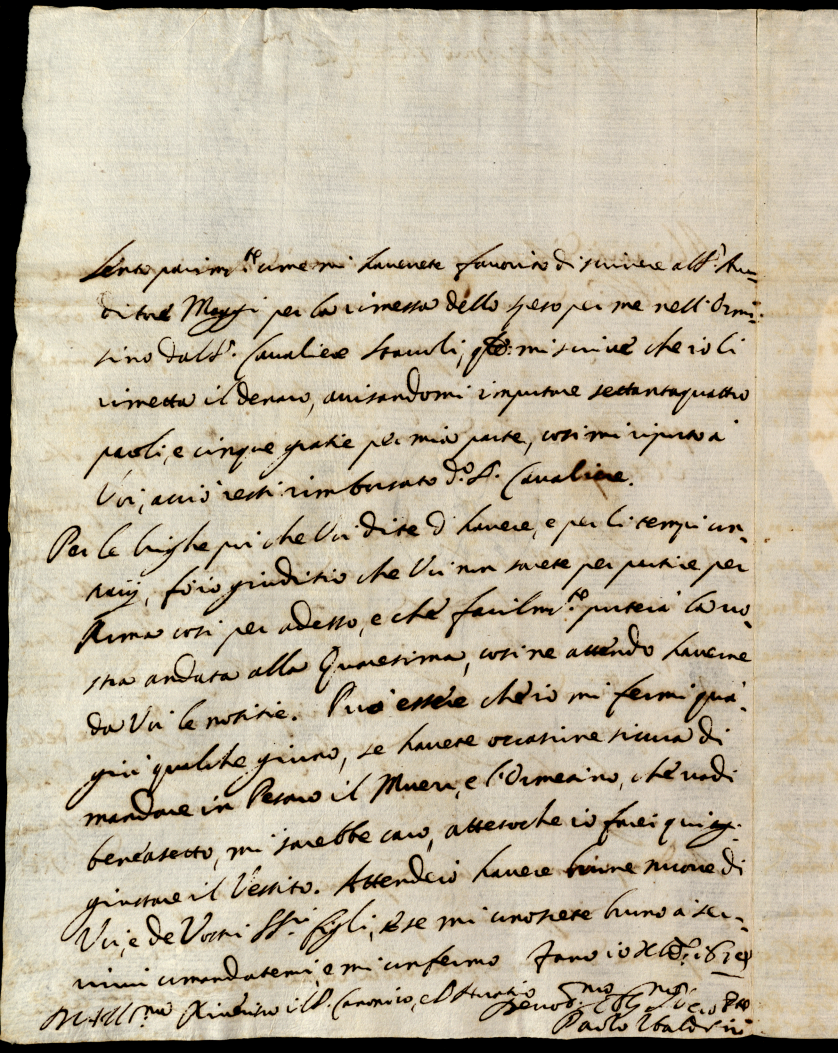 Sento parim.te come mi haverete favorito di scrivere al S.r Au-
ditore Maggi per la rimessa dello speso per me nell'Ormi-
sino dal S.r Cavaliere Stavoli, mi scrive che io li
rimetta il denaro, avisandomi importare settantaquattro
paoli, e cinque gratie per mia parte, così mi riporto à
Voi, acciò resti rimborsato d.o S.r Cavaliere.
Per le brighe poi che Voi dite d'havere, e per li tempi con-
trarij, fò io giuditio che Voi non sarete per partire per
Roma così per adesso, e che facilm.te porterà la vo-
stra andata alla Quaresima, così ne attendo haverne
da Voi le notitie. Può essere che io mi fermi quà
giù qualche giorno, se havete occasione sicura di
mandare in Pesaro il Moerre, e l'Ormesino, che vadi
bene asetto, mi sarebbe caro, attesoche io farei qui ag-
giustare il Vestito. Attenderò havere buone nuove di
Voi, e de Vostri SS.ri figli, e se mi conoscete buono à ser-
virvi comandatemi, e mi confermo Fano 10 Xbre
Riverisco il S. Canonico, e
Paolo Ubaldini